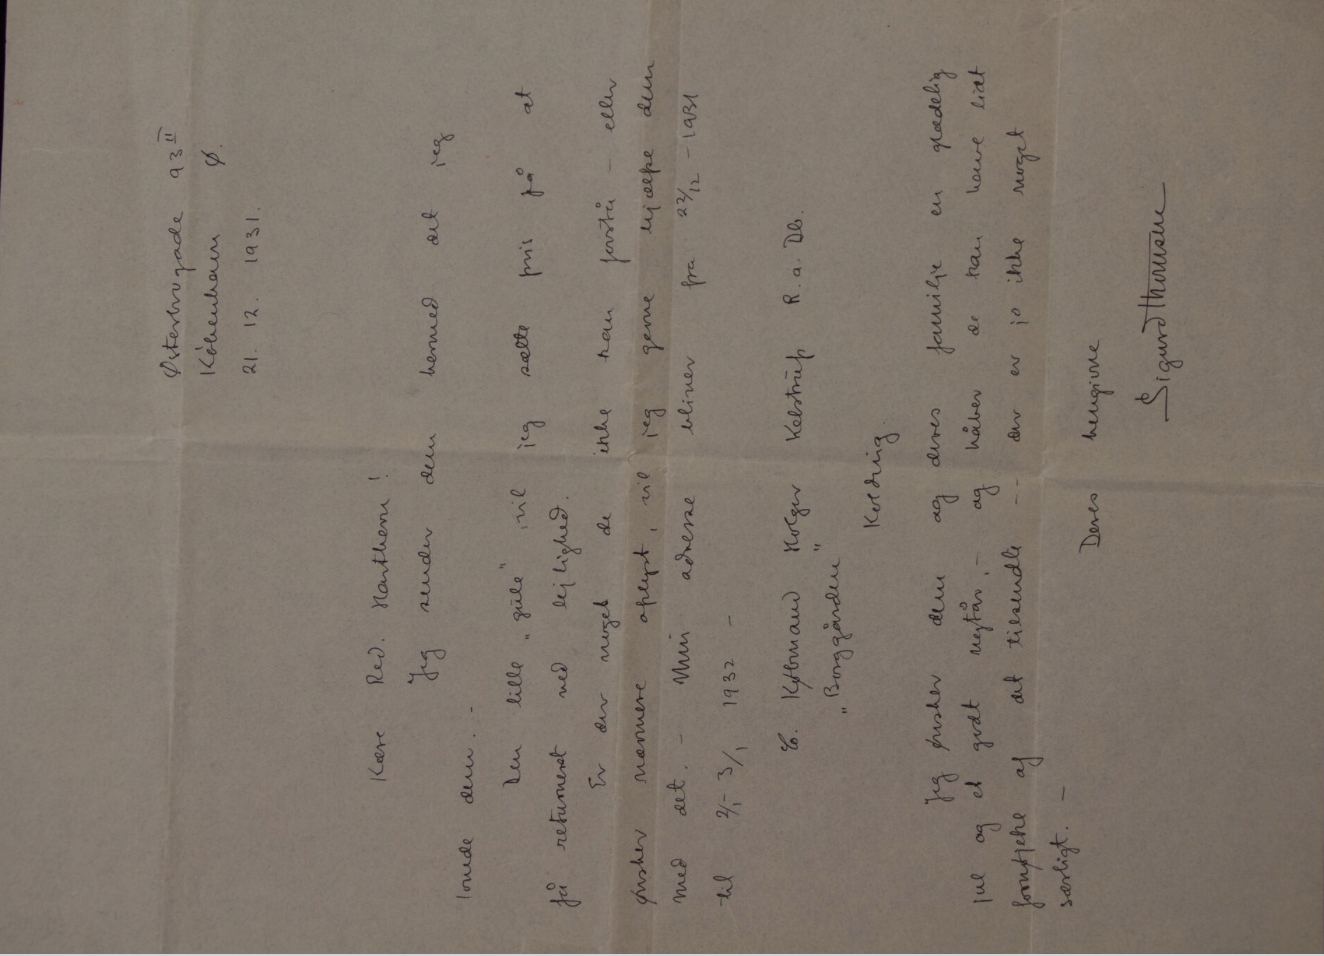 Østerbrogade 93 II
København Ø.
21. 12. 1931.
Kære Red. Marthem!
Jeg sender dem hermed det jeg
lovede dem. -
Den lille "gule" vil jeg sætte pris på at
få returneret ved lejlighed.
Er der noget de ikke kan forstå - eller
ønsker nærmere oplyst, vil jeg gerne hjælpe dem
med det. - Min adresse bliver fra 23/12 - 1931
til 2/- 3/1 1932 -
Købmand Holger Kelstrup R. a. Db.
"Borggården"
Kolding.
Jeg ønsker dem og deres familje en glædelig
jul og et godt nytår, - og håber de kan have lidt
fornøjelse af det tilsendte -- der er jo ikke noget
særligt. -
Deres hengivne
Sigurd Thomsen